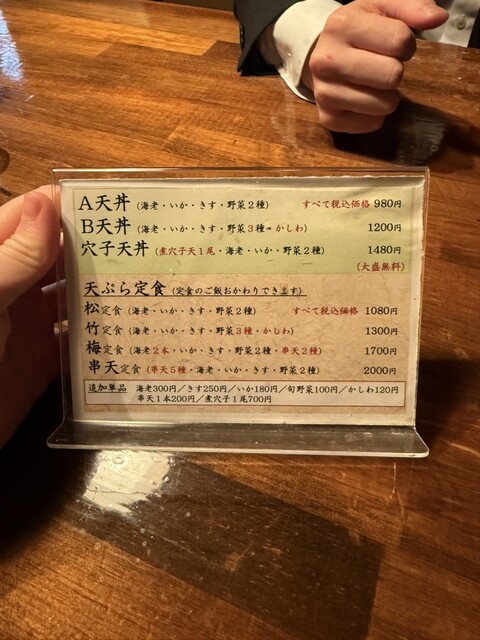 A天丼 (海老・いか・きす・野菜2種) すべて税込価格 980円
B天丼 (海老・いか・きす・野菜3種・かしわ) 1200円
穴子天丼 (煮穴子天1尾・海老・いか・野菜2種) 1480円
(大盛無料)
天ぷら定食 (定食のご飯おかわりできます)
松定食 (海老・いか・きす・野菜2種) すべて税込価格 1080円
竹定食 (海老・いか・きす・野菜3種・かしわ) 1300円
梅定食 (海老2本・いか・きす・野菜2種・串天2種) 1700円
串天定食 (串天5種・海老・いか・きす・野菜2種) 2000円
追加単品 海老300円/きす250円/いか180円/旬野菜100円/かしわ120円
串天1本200円/煮穴子1尾700円